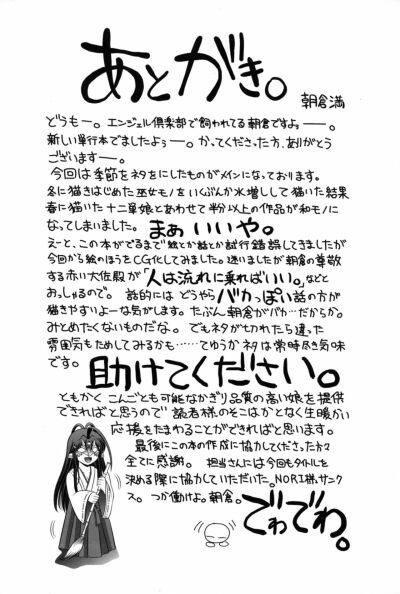 あとがき。
朝倉満
どうもー。エンジェル倶楽部で飼われてる朝倉ですよぅーー。
新しい単行本でましたよぅーー。かってくださった方、ありがとう
ございますーー。
今回は季節をネタをにしたものがメインになっております。
冬に描きはじめた巫女モノをいくぶんか水増しして描いた結果
春に描いた十二単娘とあわせて半分以上の作品が和モノに
なってしまいました。まぁいいや。
えーと、この本がでるまで絵とか話とか試行錯誤してきましたが
今回から絵のほうをCG化してみました。迷いましたが朝倉の尊敬
する赤い大佐殿が「人は流れに乗ればいい。」などと
おっしゃるので。話的にはどうやらバカっぽい話の方が
描きやすいよーな気がします。たぶん朝倉がバカ…だからか。
みとめたくないものだな。でもネタがきれたら違った
雰囲気もためしてみるかも……てゆうかネタは常時尽き気味
です。助けてください。
ともかくこんごとも可能なかぎり品質の高い娘を提供
できればと思うので読者様のそこはかとなく生暖かい
応援をたまわることができればと思います。
最後にこの本の作成に協力してくださった方々
全てに感謝。担当さんには今回もタイトルを
決める際に協力していただいた。NORI様、サンク
ス。つか働けよ。朝倉。
でわでわ。